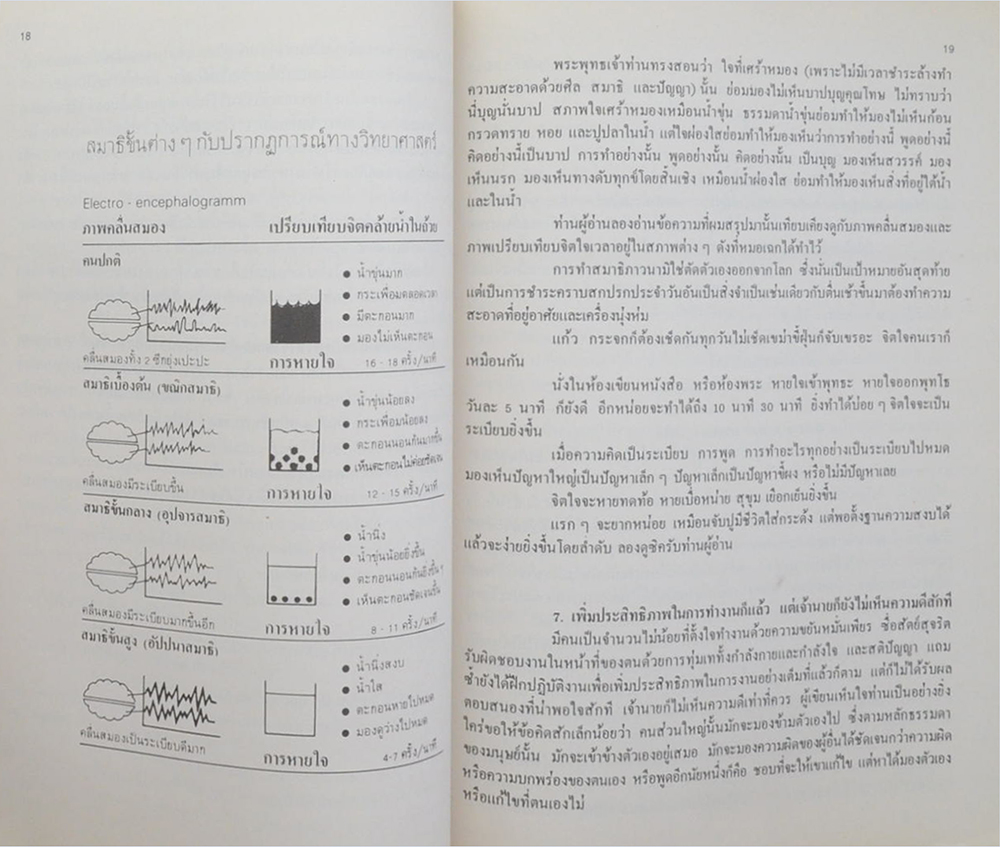 18
สมาธิขั้นต่าง ๆ กับปรากฏการณ์ทางวิทยาศาสตร์
Electro - encephalogramm
ภาพคลื่นสมอง
เปรียบเทียบจิตคล้ายน้ำในถ้วย
คนปกติ
● น้ำขุ่นมาก
● กระเพื่อมตลอดเวลา
● มีตะกอนมาก
● มองไม่เห็นตะกอน
คลื่นสมองทั้ง 2 ซีกยุ่งเปะปะ
การหายใจ
16 - 18 ครั้ง/นาที
สมาธิเบื้องต้น (ขณิกสมาธิ)
● น้ำขุ่นน้อยลง
● กระเพื่อมน้อยลง
● ตะกอนนอนก้นมากขึ้น
● เห็นตะกอนไม่ค่อยชัดเจน
คลื่นสมองมีระเบียบขึ้น
การหายใจ
12 - 15 ครั้ง/นาที
สมาธิขั้นกลาง (อุปจารสมาธิ)
● น้ำนิ่ง
● น้ำขุ่นน้อยยิ่งขึ้น
● ตะกอนนอนก้นยิ่งขึ้น ๆ
● เห็นตะกอนชัดเจนขึ้น
คลื่นสมองมีระเบียบมากขึ้นอีก
การหายใจ
8 - 11 ครั้ง/นาที
สมาธิขั้นสูง (อัปปนาสมาธิ)
● น้ำนิ่งสงบ
● น้ำใส
● ตะกอนหายไปหมด
● มองดูว่างไปหมด
คลื่นสมองเป็นระเบียบดีมาก
การหายใจ
4-7 ครั้ง/นาที
19
พระพุทธเจ้าท่านทรงสอนว่า ใจที่เศร้าหมอง (เพราะไม่มีเวลาชำระล้างทำ
ความสะอาดด้วยศีล สมาธิ และปัญญา) นั้น ย่อมมองไม่เห็นบาปบุญคุณโทษ ไม่ทราบว่า
นี่บุญนั่นบาป สภาพใจเศร้าหมองเหมือนน้ำขุ่น ธรรมดาน้ำขุ่นย่อมทำให้มองไม่เห็นก้อน
กรวดทราย หอย และปูปลาในน้ำ แต่ใจผ่องใสย่อมทำให้มองเห็นว่าการทำอย่างนี้ พูดอย่างนี้
คิดอย่างนี้เป็นบาป การทำอย่างนั้น พูดอย่างนั้น คิดอย่างนั้น เป็นบุญ มองเห็นสวรรค์ มอง
เห็นนรก มองเห็นทางดับทุกข์โดยสิ้นเชิง เหมือนน้ำผ่องใส ย่อมทำให้มองเห็นสิ่งที่อยู่ใต้น้ำ
และในน้ำ
ท่านผู้อ่านลองอ่านข้อความที่ผมสรุปมานั้นเทียบเคียงดูกับภาพคลื่นสมองและ
ภาพเปรียบเทียบจิตใจเวลาอยู่ในสภาพต่าง ๆ ดังที่หมอเฉกได้ทำไว้
การทำสมาธิภาวนามิใช่ตัดตัวเองออกจากโลก ซึ่งนั่นเป็นเป้าหมายอันสุดท้าย
แต่เป็นการชำระคราบสกปรกประจำวันอันเป็นสิ่งจำเป็นเช่นเดียวกับตื่นเช้าขึ้นมาต้องทำความ
สะอาดที่อยู่อาศัยและเครื่องนุ่งห่ม
แก้ว กระจกก็ต้องเช็ดกันทุกวันไม่เช็ดเขม่าขี้ฝุ่นก็จับเขรอะ จิตใจคนเราก็
เหมือนกัน
นั่งในห้องเขียนหนังสือ หรือห้องพระ หายใจเข้าพุทธะ หายใจออกพุทโธ
วันละ 5 นาที ก็ยังดี อีกหน่อยจะทำได้ถึง 10 นาที 30 นาที ยิ่งทำได้บ่อย ๆ จิตใจจะเป็น
ระเบียบยิ่งขึ้น
เมื่อความคิดเป็นระเบียบ การพูด การทำอะไรทุกอย่างเป็นระเบียบไปหมด
มองเห็นปัญหาใหญ่เป็นปัญหาเล็ก ๆ ปัญหาเล็กเป็นปัญหาขี้ผง หรือไม่มีปัญหาเลย
จิตใจจะหายหดท้อ หายเบื่อหน่าย สุขุม เยือกเย็นยิ่งขึ้น
แรก ๆ จะยากหน่อย เหมือนจับปูมีชีวิตใส่กระด้ง แต่พอตั้งฐานความสงบได้
แล้วจะง่ายยิ่งขึ้นโดยลำดับ ลองดูซิครับท่านผู้อ่าน
7. เพิ่มประสิทธิภาพในการทำงานก็แล้ว แต่เจ้านายก็ยังไม่เห็นความดีสักที
มีคนเป็นจำนวนไม่น้อยที่ตั้งใจทำงานด้วยความขยันหมั่นเพียร ซื่อสัตย์สุจริต
รับผิดชอบงานในหน้าที่ของตนด้วยการทุ่มเททั้งกำลังกายและกำลังใจ และสติปัญญา แถม
ซ้ำยังได้ฝึกปฏิบัติงานเพื่อเพิ่มประสิทธิภาพในการงานอย่างเต็มที่แล้วก็ตาม แต่ก็ไม่ได้รับผล
ตอบสนองที่น่าพอใจสักที เจ้านายก็ไม่เห็นความดีเท่าที่ควร ผู้เขียนเห็นใจท่านเป็นอย่างยิ่ง
ใคร่ขอให้ข้อคิดสักเล็กน้อยว่า คนส่วนใหญ่นั้นมักจะมองข้ามตัวเองไป ซึ่งตามหลักธรรมดา
ของมนุษย์นั้น มักจะเข้าข้างตัวเองอยู่เสมอ มักจะมองความผิดของผู้อื่นได้ชัดเจนกว่าความผิด
หรือความบกพร่องของตนเอง หรือพูดอีกนัยหนึ่งก็คือ ชอบที่จะให้เขาแก้ไข แต่หาได้มองตัวเอง
หรือแก้ไขที่ตนเองไม่